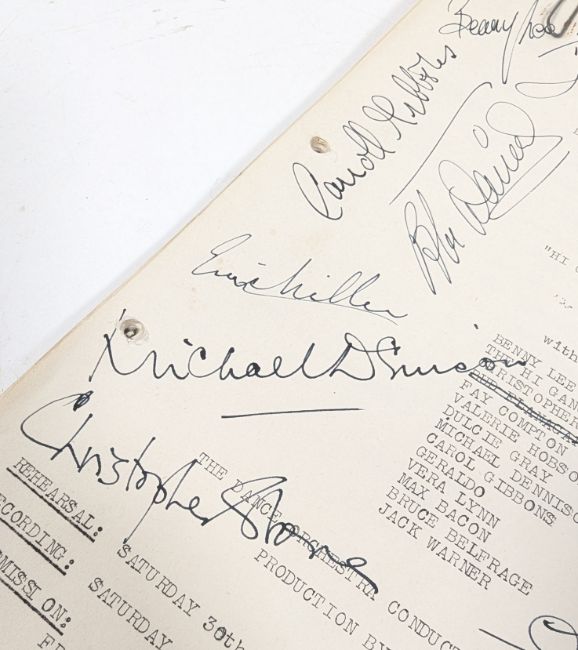 Benny Lee
Carroll Gibbons
Eric Miller
Michael Denison
Christopher Stone
"HI
with
BENNY LEE
THE HI GAN
CHRISTOPHER
FAY COMPTON
VALERIE HOBSO
DULCIE GRAY
MICHAEL DENNISO
CAROL GIBBONS
GERALDO
VERA LYNN
MAX BACON
BRUCE BELFRAGE
JACK WARNER
THE DANCE ORCHESTRA CONDUCT
PRODUCTION BY
REHEARSAL: SATURDAY 30th
ECORDING: SATURDAY
MISSION: